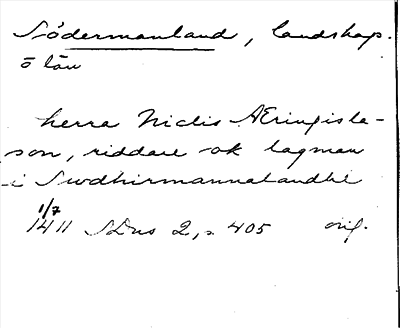 Södermanland, landskap.
o län
herra Niclis Æringisla-
son, riddare ok lagman
i Swdhirmannalandhe
1/7
1411 SDns 2, s 405 orig.